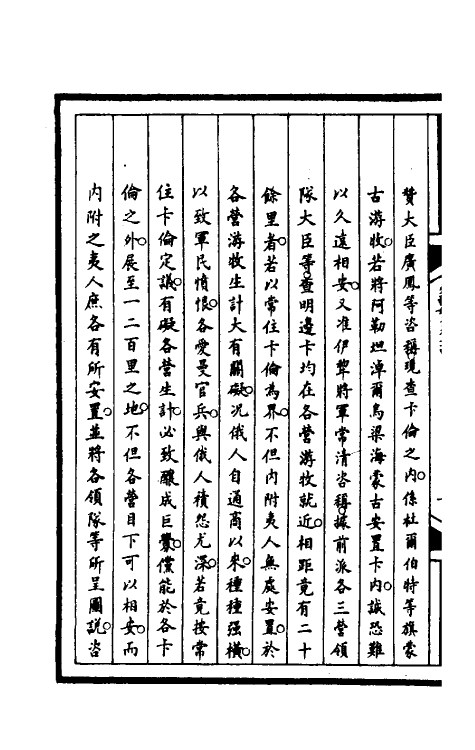 贊大臣廣鳳等咨稱現查卡倫之內。係杜爾伯特等旗蒙
古游牧。若將阿勒坦淖爾烏梁海蒙古安置卡內。誠恐難
以久遠相安。又准伊犂將軍常清咨稱。據前派各三營領
隊大臣等。查明邊卡均在各營游牧就近。相距竟有二十
餘里者。若以常住卡倫為界。不但內附夷人無處安置。於
各營游牧生計大有關礙。況俄人自通商以來。種種强橫。
以致軍民憤恨。各愛曼官兵。與俄人積怨尤深。若竟按常
住卡倫定議。有礙各營生計。必致釀成巨釁。儻能於各卡
倫之外。展至一二百里之地。不但各營目下可以相安。而
內附之夷人庶各有所安置。並將各領隊等所呈圖說。咨